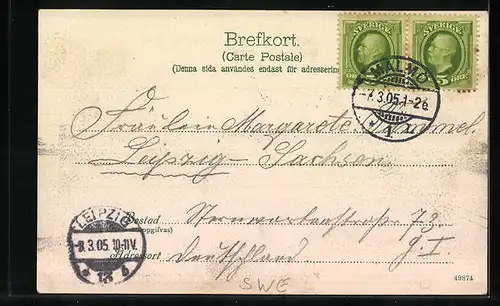 SVERIGE SVERIGE
ÖRE 5 ÖRE
Brefkort.
(Carte Postale)
(Denna sida användes endast för adresserin
MALMÖ
-7.3.05.1-2 e.
* 1 *
Fräulein Margarete
Leipzig - Sachsen.
LEIPZIG
8.3.05.10-11V.
* 13
Bostad Sternwartenstraße 73.
(om uppgifvas) g. I
Adressort Deutschland
SWE
49874